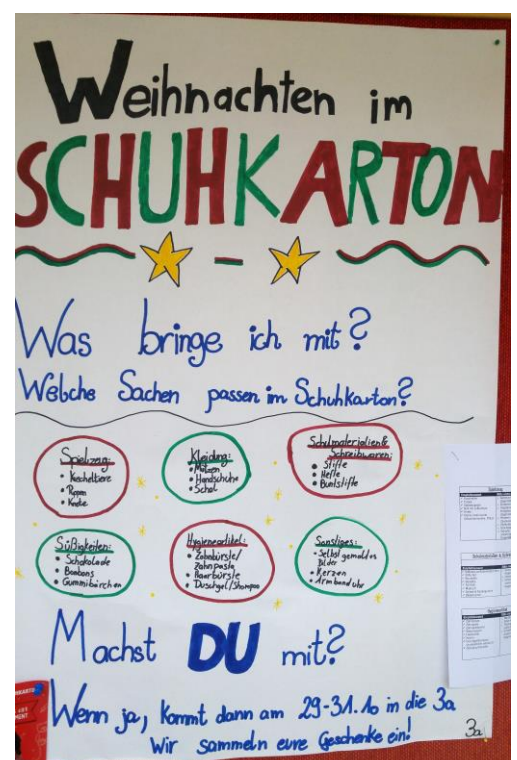 Weihnachten im
SCHUHKARTON
Was bringe ich mit?
Welche Sachen passen im Schuhkarton?
Spielzeug:
• Kuscheltiere
• Puppen
• Knete
Kleidung:
• Mützen
• Handschuhe
• Schal
Schulmaterialien&
Schreibwaren:
• Stifte
• Hefte
• Buntstifte
Süßigkeiten:
• Schokolade
• Bonbons
• Gummibärchen
Hygieneartikel:
• Zahnbürste/
Zahnpasta
• Haarbürste
• Duschgel/Shampoo
Sonstiges:
• Selbst gemaltes
Bilder
• Kerzen
• Armbanduhr
Machst DU mit?
Wenn ja, kommt dann am 29-31.10 in die 3a
Wir sammeln eure Geschenke ein!
3a